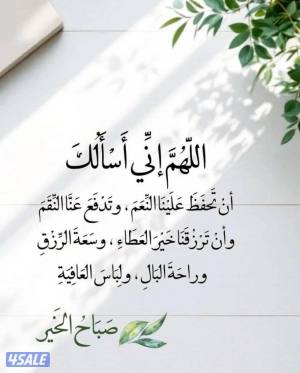 اللَّهُمَّ إِنِّي أَسْأَلُكَ
أنْ تَحفَظَ عَلَيْنَا النِّعَمَ، وتَدْفَعَ عَنَّا النِّقَمَ
وأنْ تَرْزُقَنَا خَيْرَ العَطَاءِ، وسَعَةَ الرِّزْقِ
وراحَةَ البَالِ، ولِبَاسَ العَافِيَةِ
صَبَاحُ الخَير
4SALE